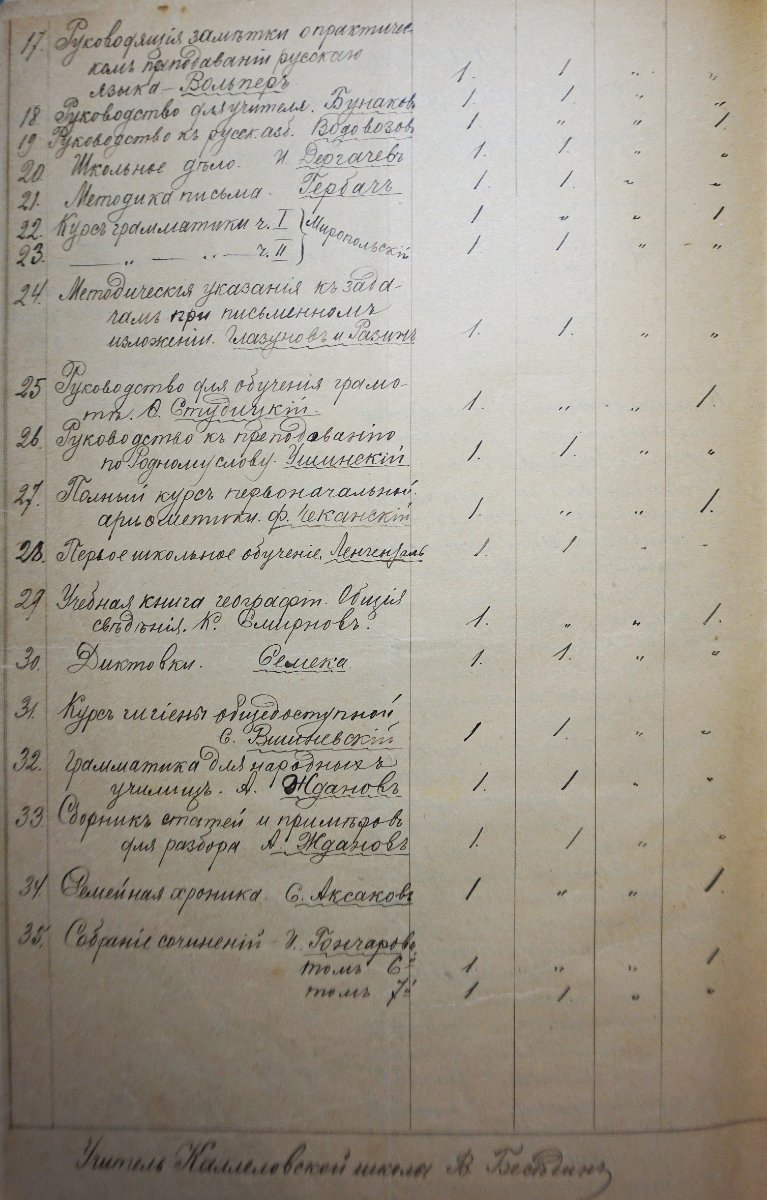 17. Руководящія замѣтки о практичес-
комъ преподаваніи русскаго
языка – Вольперъ 1. 1 „ „
18. Руководство для учителя. Бунаковъ 1. 1. „ „
19. Руководство къ русск. азб. Водовозовъ 1. „ „ 1.
20. Школьное дѣло. И. Дергачевъ 1. 1. „ „
21. Методика письма. Гербачъ 1. 1. „ „
22. Курсъ грамматики ч. I Миропольскій 1 „ „ 1
23. — „ — „ — ч. II 1. 1. „ „
24. Методическія указанія къ зада-
чамъ при письменномъ
изложеніи. Глазуновъ и 1. 1. „ „
25 Руководство для обученія грамо-
тѣ. Ѳ. Студицкій. 1. „ „ 1.
26. Руководство къ преподаванію
по Родному слову. Ушинскій 1. 1. „ „
27. Полный курсъ первоначальной
ариѳметики. Ф. Чеканскій 1. „ „ 1.
28. Первое школьное обученіе. 1. 1 „ „
29 Учебная книга географіи. Общія
свѣдѣнія. К. Смирновъ. 1. „ „ 1.
30. Диктовки. Семека 1. 1. „ „
31. Курсъ гигіены общедоступной
С. Вишневскій 1 1. „ „
32. Грамматика для народныхъ
училищъ. А. Ждановъ 1. 1 „ „
33 Сборникъ статей и примѣровъ
для разбора А. Ждановъ 1. 1 „ „
34 Семейная хроника. С. Аксаковъ 1 „ „ 1.
35. Собраніе сочиненій И. Гончаровъ
томъ 6й 1. „ „ 1.
томъ 7й 1 1. „ „
Учитель школы В.